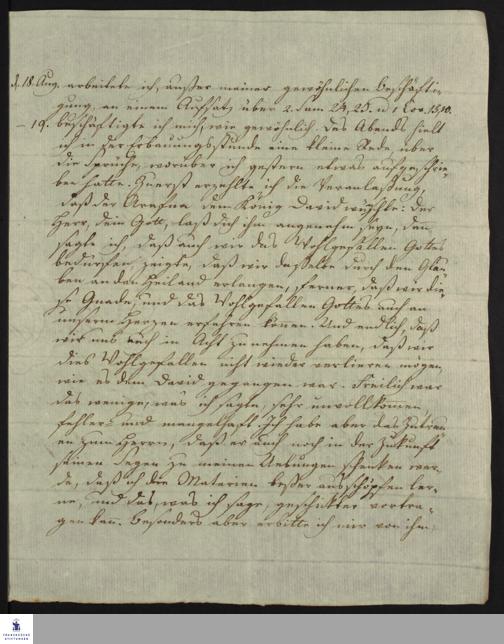 d. 18. Aug. arbeitete ich, außer meiner gewöhnlichen Beschäfti-
gung, an einem Aufsatz über 2. Sam. 24, 23. u. 1 Cor. 15, 10.
– 19. beschäftigte ich mich, wie gewöhnlich. Des Abends hielt
ich in der Erbauungsstunde eine kleine Rede, über
die Sprüche, worüber ich gestern etwas aufgeschrie-
ben hatte. Zuerst erzehlte ich die Veranlaßung,
daß der Arafna dem König David wünschte: der
Herr, dein Gott, laß dich ihm angenehm seyn, dan
sagte ich, daß auch wir das Wohlgefallen Gottes
bedürfen, zeigte, daß wir dasselbe durch den Glau-
ben an den Heiland erlangen, ferner, daß wir die-
se Gnade, und das Wohlgefallen Gottes auch an
unserm Herzen erfahren können. Und endlich, daß
wir uns auch in Acht zu nehmen haben, daß wir
dies Wohlgefallen nicht wieder verlieren mögen,
wie es dem David gegangen war. Freilich war
das wenige, was ich sagte, sehr unvollkomen
fehler- und mangelhaft. Ich habe aber das Zutrau-
en zum Herrn, daß er auch noch in der Zukunft
seinen Segen zu meinen Uebungen schenken wer-
de, daß ich die Materien beßer ausschöpfen ler-
ne, und das, was ich sage, geschickter vortra-
gen kan. Besonders aber erbitte ich mir von ihm,
FRANCKESCHE
STIFTUNGEN